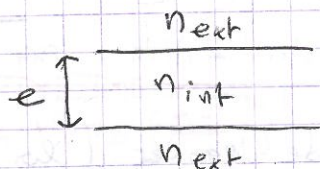 n_ext
e
n_int
n_ext